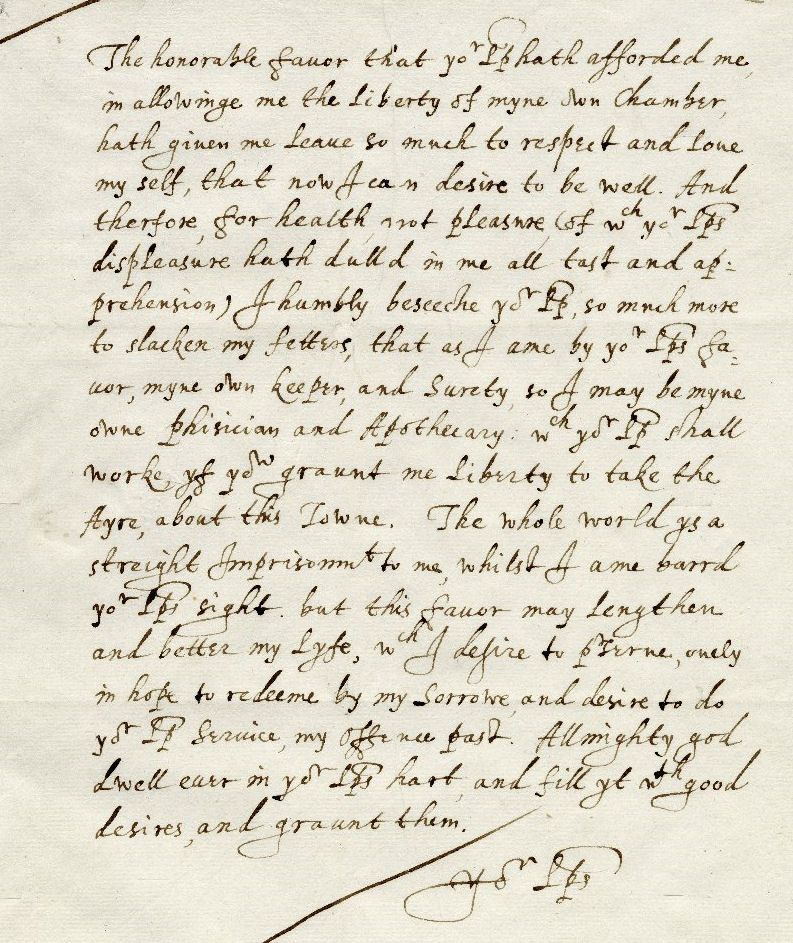 The honorable favor that yor Lp hath afforded me,
in allowinge me the liberty of myne own Chamber,
hath given me leaue so much to respect and loue
my self, that now I can desire to be well. And
therfore, for health, not pleasure, (of wch yor Lps
displeasure hath dulld in me all tast and ap:
prehension) I humbly beseeche yor Lp, so much more
to slacken my fetters, that as I ame by yor Lps fa:
uor, myne own keeper, and Surety, so I may be myne
owne phisician and Apothecary: wch yor Lp shall
worke, yf yow graunt me liberty to take the
Ayre, about this Towne. The whole world ys a
streight Imprisonmt to me, whilst I ame barrd
yor Lps sight. but this favor may lengthen
and better my lyfe, wch I desire to prserue, onely
in hope to redeeme by my Sorrowe, and desire to do
yor Lp Service, my offence past. Allmighty god
dwell ever in yor Lps hart, and fill yt wth good
desires, and graunt them.
yor Lps